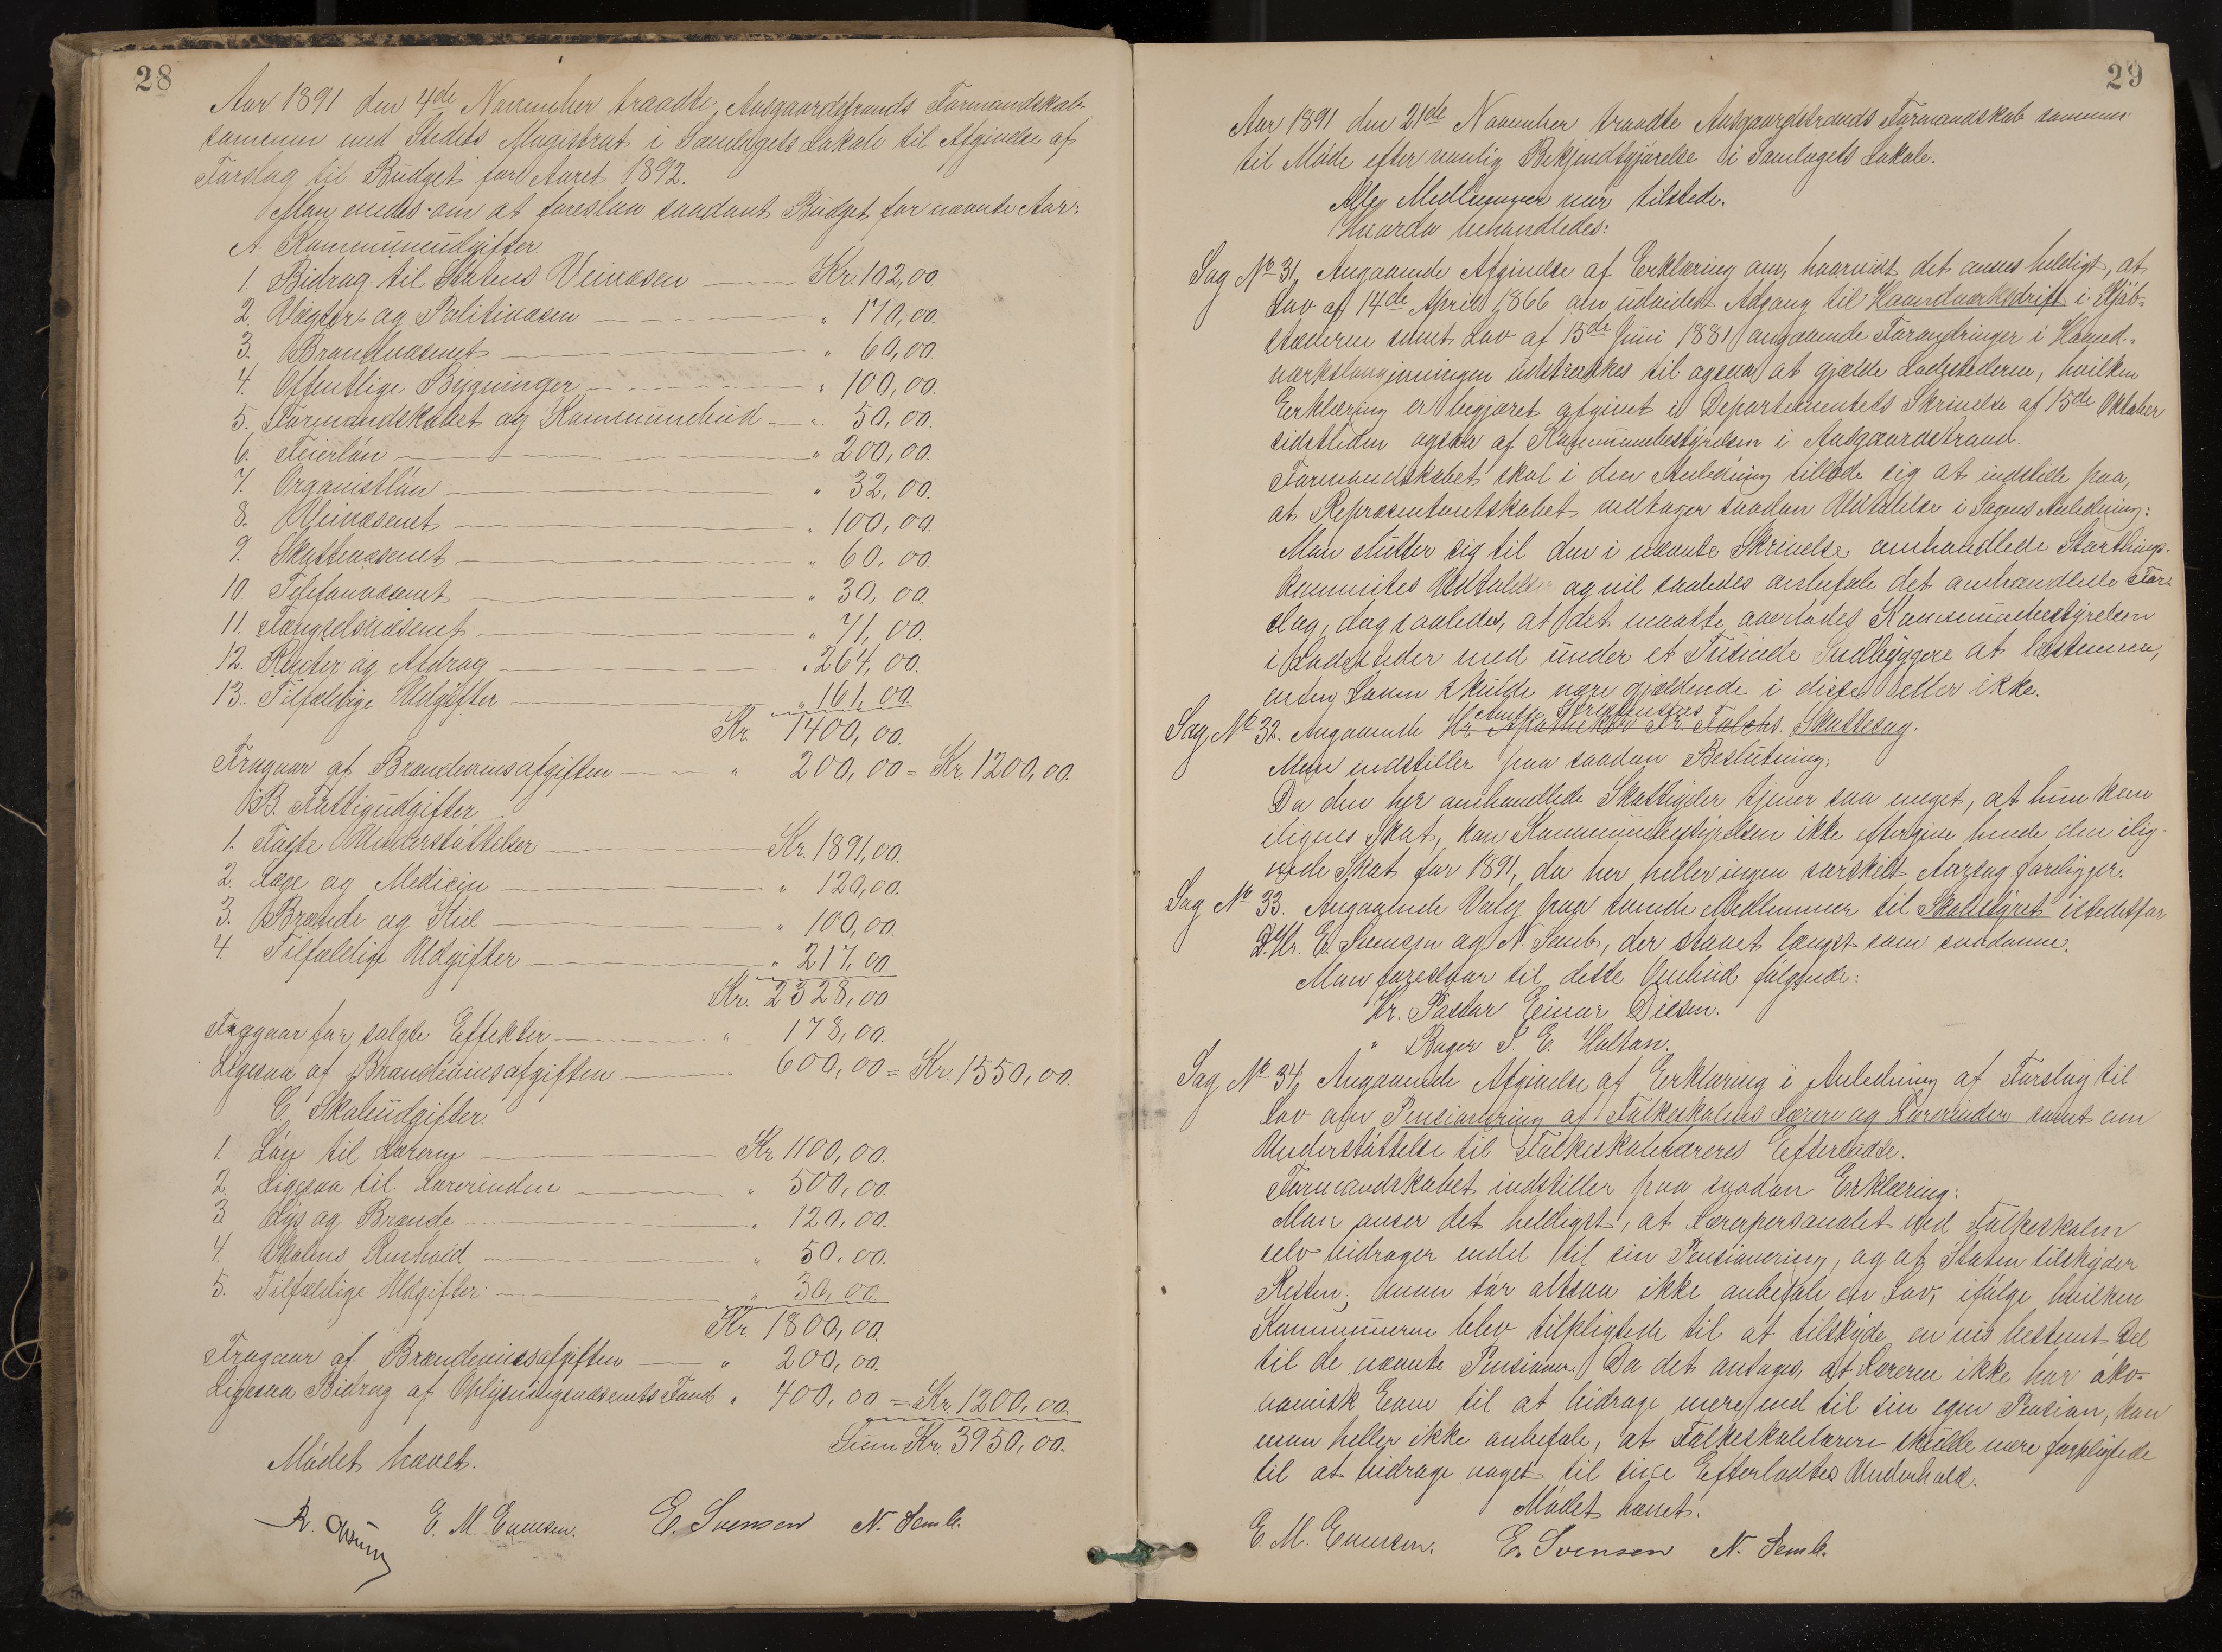 28
Aar 1891 den 4de November traadte Aasgaardstrands Formandskab
sammen med Stedets Magistrat i Samlagets Lokale til Afgivelse af
Forslag til Budget for Aaret 1892.
Man enedes om at foreslaa saadant Budget for nævnte Aar:
A. Kommuneudgifter.
1. Bidrag til Statens Veivæsen Kr. 102,00.
2. Vægter- og Politivæsen " 170,00.
3. Brandvæsenet " 60,00.
4. Offentlige Bygninger " 100,00.
5. Formandskabet og Kommunebud " 50,00.
6. Feierløn " 200,00.
7. Organistløn " 32,00.
8. Veivæsenet " 100,00.
9. Skattevæsenet " 60,00.
10. Telefonvæsenet " 30,00.
11. Fængselsvæsenet " 71,00.
12. Renter og Afdrag " 264,00.
13. Tilfældige Udgifter " 161,00
Kr 1400,00.
Fragaar af Brændevinsafgiften " 200,00 = Kr. 1200,00.
B. Fattigudgifter
1. Faste Understøttelser Kr. 1891,00.
2. Læge og Medicin " 120,00.
3. Brænde og Kul " 100,00.
4. Tilfældige Udgifter " 217,00
Kr. 2328,00
Fragaar for solgte Effekter " 178,00.
Ligesaa af Brændevinsafgiften " 600,00 = Kr. 1550,00.
C. Skoleudgifter.
1. Løn til Læreren Kr 1100,00.
2. Ligesaa til Lærerinden " 500,00.
3. Lys og Brænde " 120,00.
4. Skolens Renhold " 50,00.
5. Tilfældige Udgifter " 30,00
Kr. 1800,00.
Fragaar af Brændevinsafgiften " 200,00.
Ligesaa Bidrag af Oplysningsvæsenets Fond " 400,00 = Kr. 1200,00
Sum Kr. 3950,00.
Mødet hævet.
E. M. Evensen. E. Svensen N. Semb.
29
Aar 1891 den 21de November traadte Aasgaardstrands Formandskab sammen
til Møde efter vanlig Bekjendtgjørelse i Samlagets Lokale.
Alle Medlemmer var tilstede.
Hvorda behandledes:
Sag No 31, Angaaende Afgivelse af Erklæring om, hvorvidt det ansees heldigt, at
Lov af 14de April 1866 om udvidet Adgang til Haandværksdrift i Kjøb-
stæderne samt Lov af 15de Juni 1881 angaaende Forandringer i Haand-
værkslovgivningen udstrækkes til ogsaa at gjælde Ladestederne, hvilken
Erklæring er begjæret afgivet i Departementets Skrivelse af 15de Oktober
sidstleden ogsaa af Kommunebestyrelsen i Aasgaardstrand.
Formandskabet skal i den Anledning tillade sig at indstille paa,
at Repræsentantskabet vedtager saadan Udtalelse i Sagens Anledning:
Man slutter sig til den i nævnte Skrivelse omhandlede Storthings-
kommites Udtalelse og vil saaledes anbefale det omhandlede For-
slag, dog saaledes, at det maatte overlades Kommunebestyrelsen
i Ladesteder med under et Tusinde Indbyggere at bestemme,
enten Loven skulde være gjældende i disse eller ikke.
Sag No 32. Angaaende Hr. Apotheker Fr. Falchs Skattesag.
Man indstiller paa saadan Beslutning:
Da den her omhandlede Skattyder tjener saa meget, at hun kan
ilignes Skat, kan Kommunebestyrelsen ikke eftergive hende den ilig-
nede Skat for 1891, da her heller ingen særskilt Aarsag foreligger.
Sag No 33. Angaaende Valg paa tvende Medlemmer til Skoletilsynet istedetfor
D'Hr. E. Svensen og N. Semb, der staaet længst som saadanne.
Man foreslaar til dette Ombud følgende:
Hr. Pastor Einar Diesen.
" Bager S. E. Holtan.
Sag No 34, Angaaende Afgivelse af Erklæring i Anledning af Forslag til
Lov om Pensionering af Folkeskolens Lærere og Lærerinder samt om
Understøttelse til Folkeskolelæreres Efterladte.
Formandskabet indstiller paa saadan Erklæring:
Man anser det heldigst, at Lærerpersonalet ved Folkeskolen
selv bidrager endel til sin Pensionering, og at Staten tilskyder
Resten; man tør altsaa ikke anbefale en Lov, ifølge hvilken
Kommunerne blev tilpligtede til at tilskyde en vis bestemt Del
til de nævnte Pensioner. Da det antages, at Lærerne ikke har øko-
nomisk Evne til at bidrage mere end til sin egen Pension, kan
man heller ikke anbefale, at Folkeskolelærere skulde være forpligtede
til at bidrage noget til sine Efterladtes Underhold.
Mødet hævet.
E. M. Evensen. E. Svensen N. Semb.